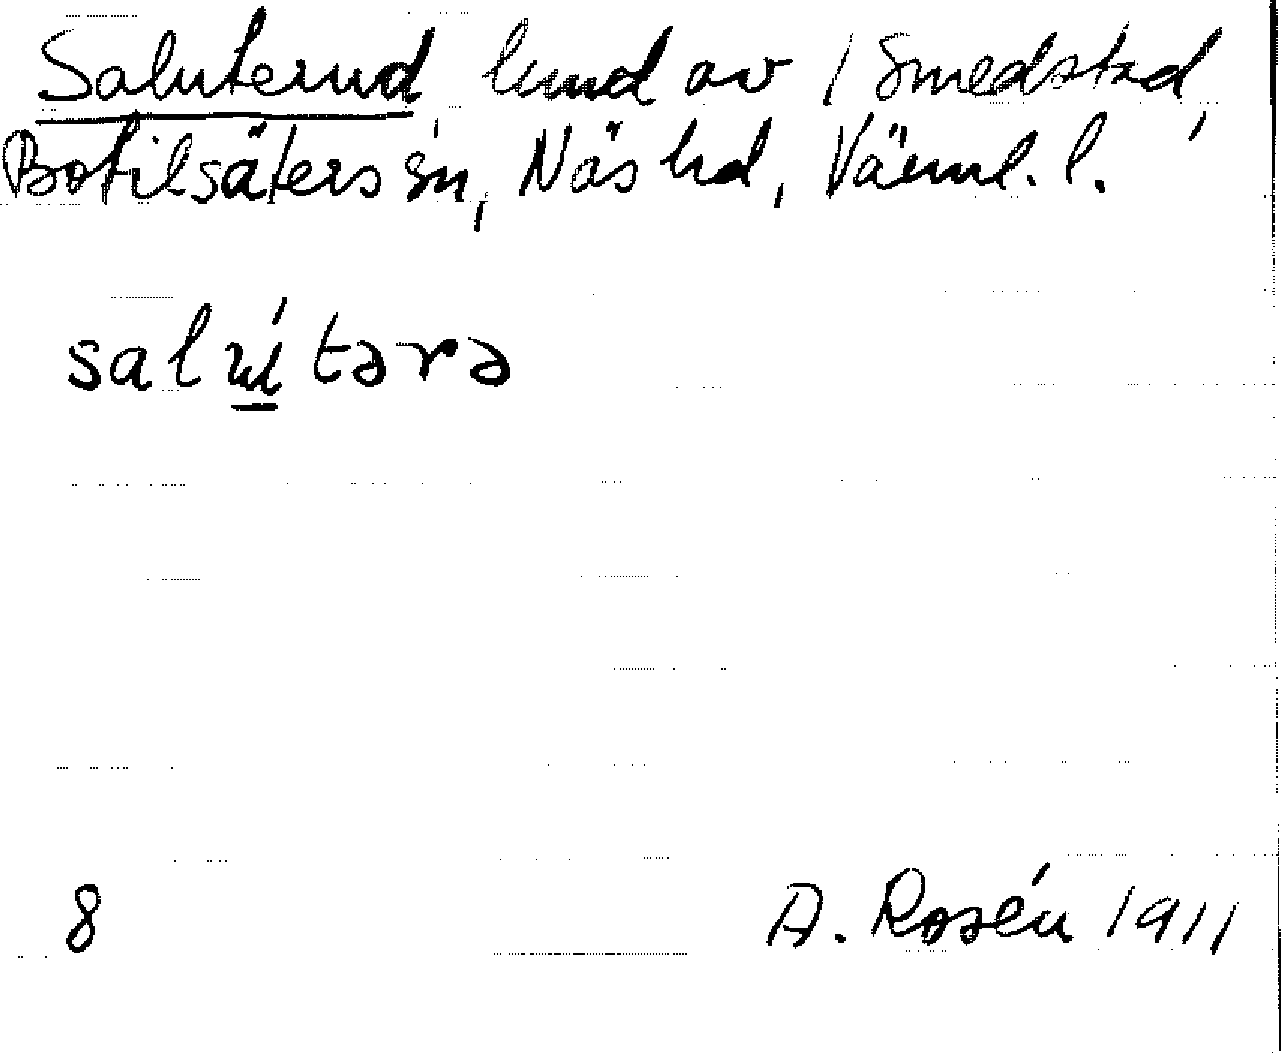 Saluterud, lund av 1 Smedstad,
Botilsäters sn, Näs hd, Värml. l.
salútərə
8
A. Rosén 1911